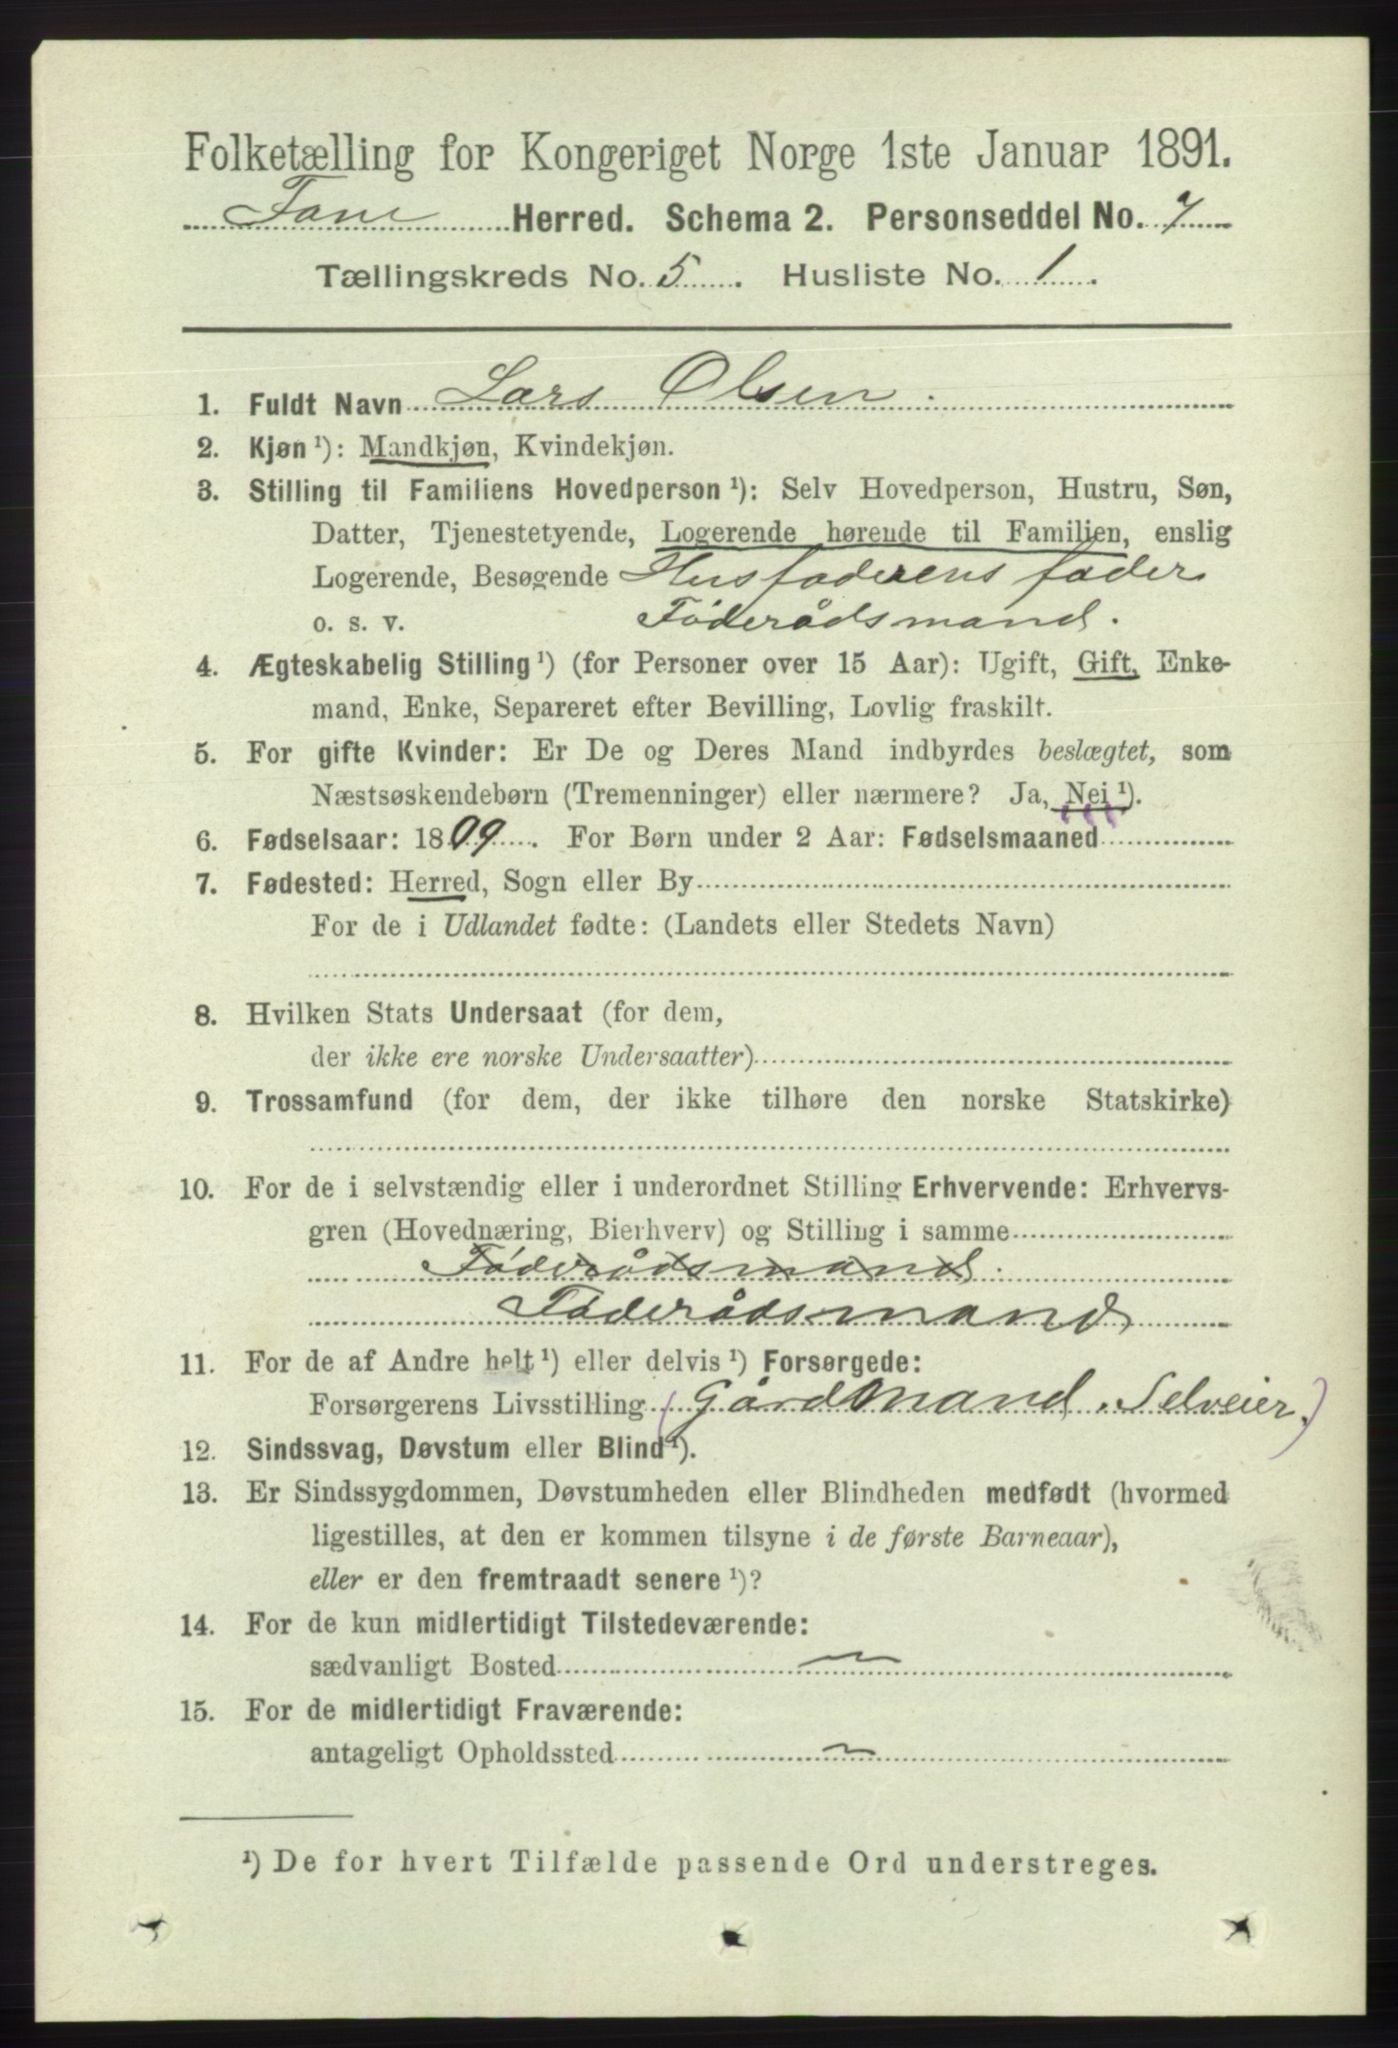 Folketælling for Kongeriget Norge 1ste Januar 1891.
Fane Herred. Schema 2. Personseddel No. 7
Tællingskreds No. 5. Husliste No. 1.
1. Fuldt Navn Lars Olsen.
2. Kjøn ¹): Mandkjøn, Kvindekjøn.
3. Stilling til Familiens Hovedperson ¹): Selv Hovedperson, Hustru, Søn,
Datter, Tjenestetyende, Logerende hørende til Familien, enslig
Logerende, Besøgende Husfaderens fader
o. s. v. Föderådsmand.
4. Ægteskabelig Stilling ¹) (for Personer over 15 Aar): Ugift, Gift, Enke-
mand, Enke, Separeret efter Bevilling, Lovlig fraskilt.
5. For gifte Kvinder: Er De og Deres Mand indbyrdes beslægtet, som
Næstsøskendebørn (Tremenninger) eller nærmere? Ja, Nei ¹).
6. Fødselsaar: 1809. For Børn under 2 Aar: Fødselsmaaned
7. Fødested: Herred, Sogn eller By
For de i Udlandet fødte: (Landets eller Stedets Navn)
8. Hvilken Stats Undersaat (for dem,
der ikke ere norske Undersaatter)
9. Trossamfund (for dem, der ikke tilhøre den norske Statskirke)
10. For de i selvstændig eller i underordnet Stilling Erhvervende: Erhvervs-
gren (Hovednæring, Bierhverv) og Stilling i samme
Föderådsmand.
Föderådsmand
11. For de af Andre helt ¹) eller delvis ¹) Forsørgede:
Forsørgerens Livsstilling (Gårdmand. Selveier.)
12. Sindssvag, Døvstum eller Blind ¹).
13. Er Sindssygdommen, Døvstumheden eller Blindheden medfødt (hvormed
ligestilles, at den er kommen tilsyne i de første Barneaar),
eller er den fremtraadt senere ¹)?
14. For de kun midlertidigt Tilstedeværende:
sædvanligt Bosted
15. For de midlertidigt Fraværende:
antageligt Opholdssted
¹) De for hvert Tilfælde passende Ord understreges.